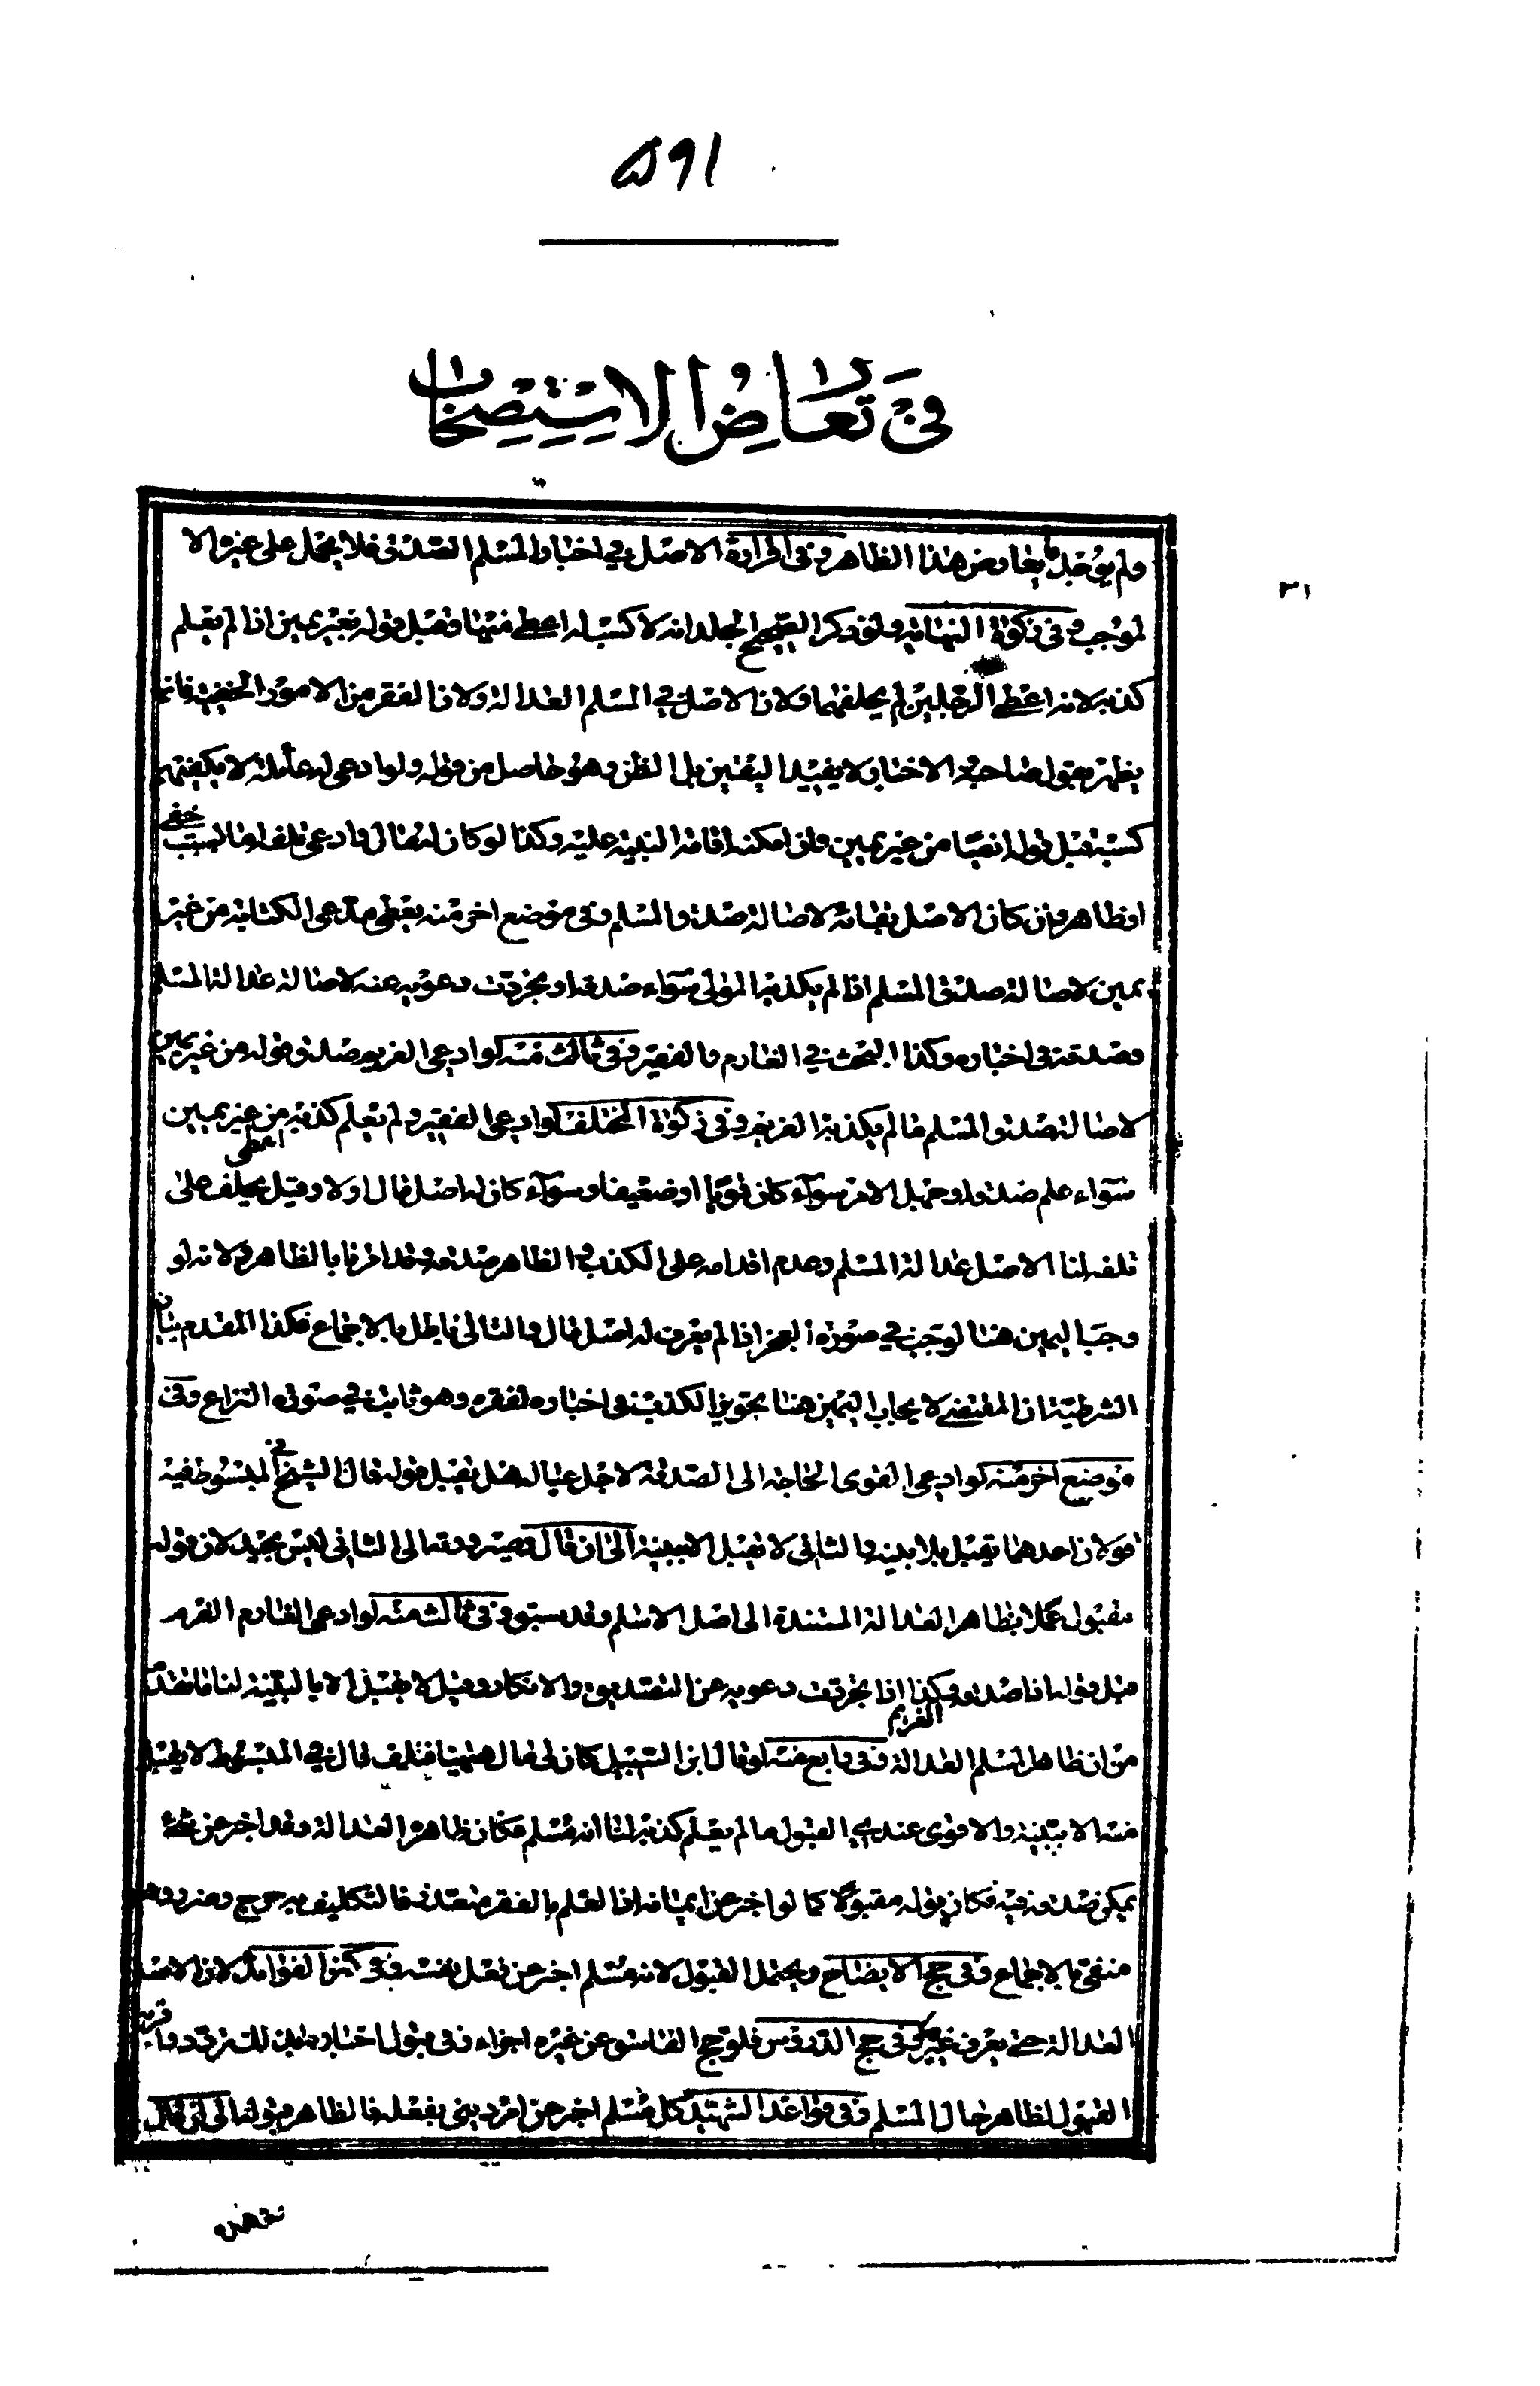 ٥٩١
في تعارض الاستصحاب
ولم يوجد ما يعارض هذا الظاهر وفي اطراده الاصل في اخبار المسلم الصدق فلا يحمل على غيره الا
لموجب وفي زكوة النهاية ولو ذكر الصحيح الجلد انه لا كسب له اعطي منها وقبل قوله بغير يمين اذا لم يعلم
كذبه لانه اعطى الرجلين لم يحلفهما ولان الاصل في المسلم العدالة ولان الفقر من الامور الخفية فانما
يظهر بقول صاحبه الاخبار لا يفيد اليقين بل الظن وهو حاصل من قوله ولو ادعى له عائلة لا يكفيهم
كسبه قبل قوله ايضا من غير يمين وان امكنه اقامة البينة عليه وكذا لو كان له مال وادعى تلفه اما لسبب خفي
او ظاهر وان كان الاصل بقائه لاصالة صدق المسلم وفي موضع اخر منه يعطى مدعى الكتابة من غير
يمين لاصالة صدق المسلم اذا لم يكذبه المولى سواء صدقه او تجردت دعويه عنه لاصالة عدالة المسلم
وصدقه في اخباره وكذا البحث في الغارم والفقير وفي ثالث منه لو ادعى الغريم صدق قوله من غير يمين
لاصالة صدق المسلم ما لم يكذبه الغريم وفي زكوة المختلف لو ادعى الفقير ولم يعلم كذبه اعطي من غير يمين
سواء علم صدقه او جهل الامر سواء كان قويا او ضعيفا وسواء كان له اصل مال اولا وقيل يحلف على
تلفه لنا الاصل عدالة المسلم وعدم اقدامه على الكذب والظاهر صدقه وقد امرنا بالظاهر ولانه لو
وجب اليمين هنا لوجب في صورة العجز اذا لم يعرف له اصل مال والتالي باطل بالاجماع فكذا المقدم بيان
الشرطية ان المقتضي لايجاب اليمين هنا تجويز الكذب في اخباره لفقره وهو ثابت في صورة النزاع وفي
موضع اخر منه لو ادعى القوى الحاجة الى الصدقة لاجل عياله هل يقبل قوله قال الشيخ في المبسوط فيه
قولان احدهما يقبل بلا بينة والثاني لا يقبل الا ببينة الى ان قال وصيرورته الى الثاني ليس بجيد لان قوله
مقبول عملا بظاهر العدالة المستندة الى اصل الاسلم وقد سبق وفي ثالث منه لو ادعى الغارم الغرم
قبل قوله اذا صدقه الغريم وكذا اذا تجردت دعويه عن التصديق والانكار وقيل لا يقبل الا بالبينة لنا ما تقدم
من ان ظاهر المسلم العدالة وفي رابع منه لو قال ابن السبيل كان لي مال هيهنا فتلف قال في المبسوط لا يقبل
منه الا ببينة والاقوى عندي القبول ما لم يعلم كذبه لنا انه مسلم فكان ظاهره العدالة وقد اخبر عن شئ
يمكن صدقه فيه فكان قوله مقبولا كما لو اخبر عن ايمانه اذ العلم بالفقر متعذر فالتكليف به حرج وضرر وهو
منفي بالاجماع وفي حج الايضاح ويحتمل القبول لانه مسلم اخبر عن فعل نفسه وفي كنز الفوائد لان الاصل
العدالة حتى يعرف غيرها وفي حج الدروس فلو حج الفاسق عن غيره اجزاء وفي قبول اخباره بذلك تردد وقرب
القبول لظاهر حال المسلم وفي قواعد الشهيد كل مسلم اخبر عن امر ديني بفعله فالظاهر قبوله الى ان قال